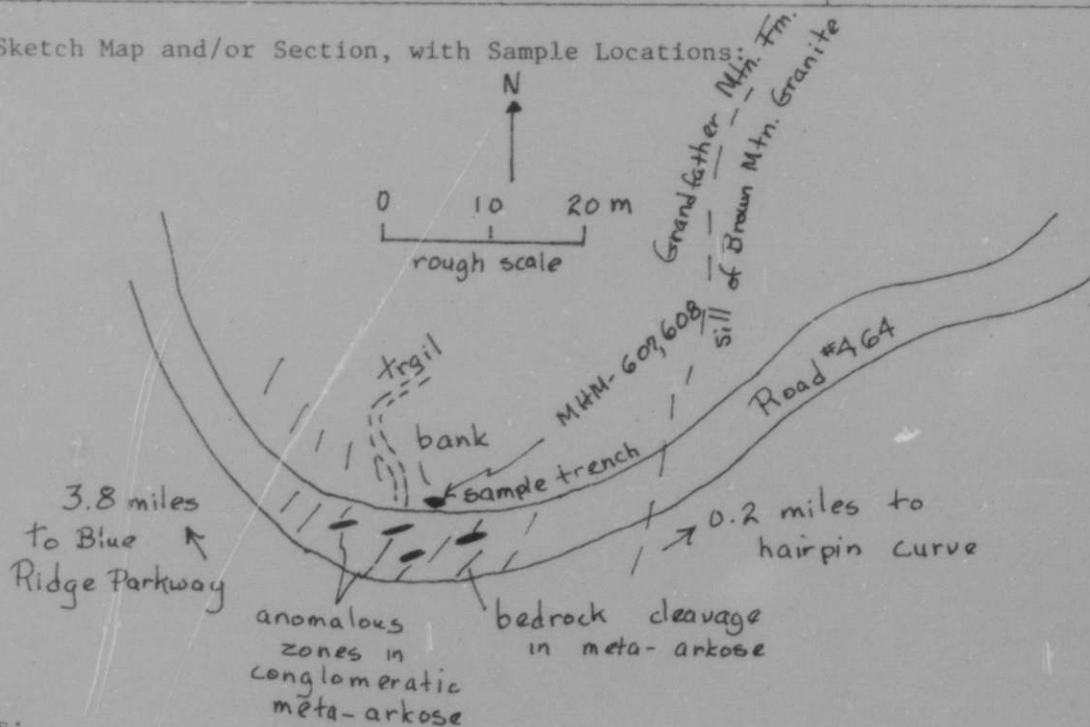 Sketch Map and/or Section, with Sample Locations:
N
0 10 20 m
rough scale
Grandfather Mtn. Fm.
sill of Brown Mtn. Granite
MHM-607,608
Road #464
trail
bank
sample trench
3.8 miles
to Blue
Ridge Parkway
0.2 miles to
hairpin curve
anomalous
zones in
conglomeratic
meta-arkose
bedrock cleavage
in meta-arkose